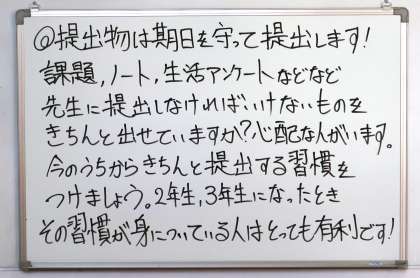 @提出物は期日を守って提出します!
課題,ノート,生活アンケートなどなど
先生に提出しなければいけないものを
きちんと出せていますか?心配な人がいます。
今のうちからきちんと提出する習慣を
つけましょう。2年生,3年生になったとき
その習慣が身についている人はとっても有利です!